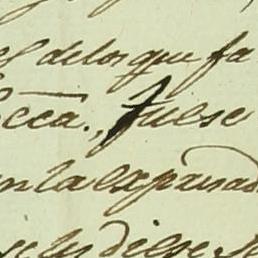 delos que fa
cca., fuese
en la expresad
se les diese